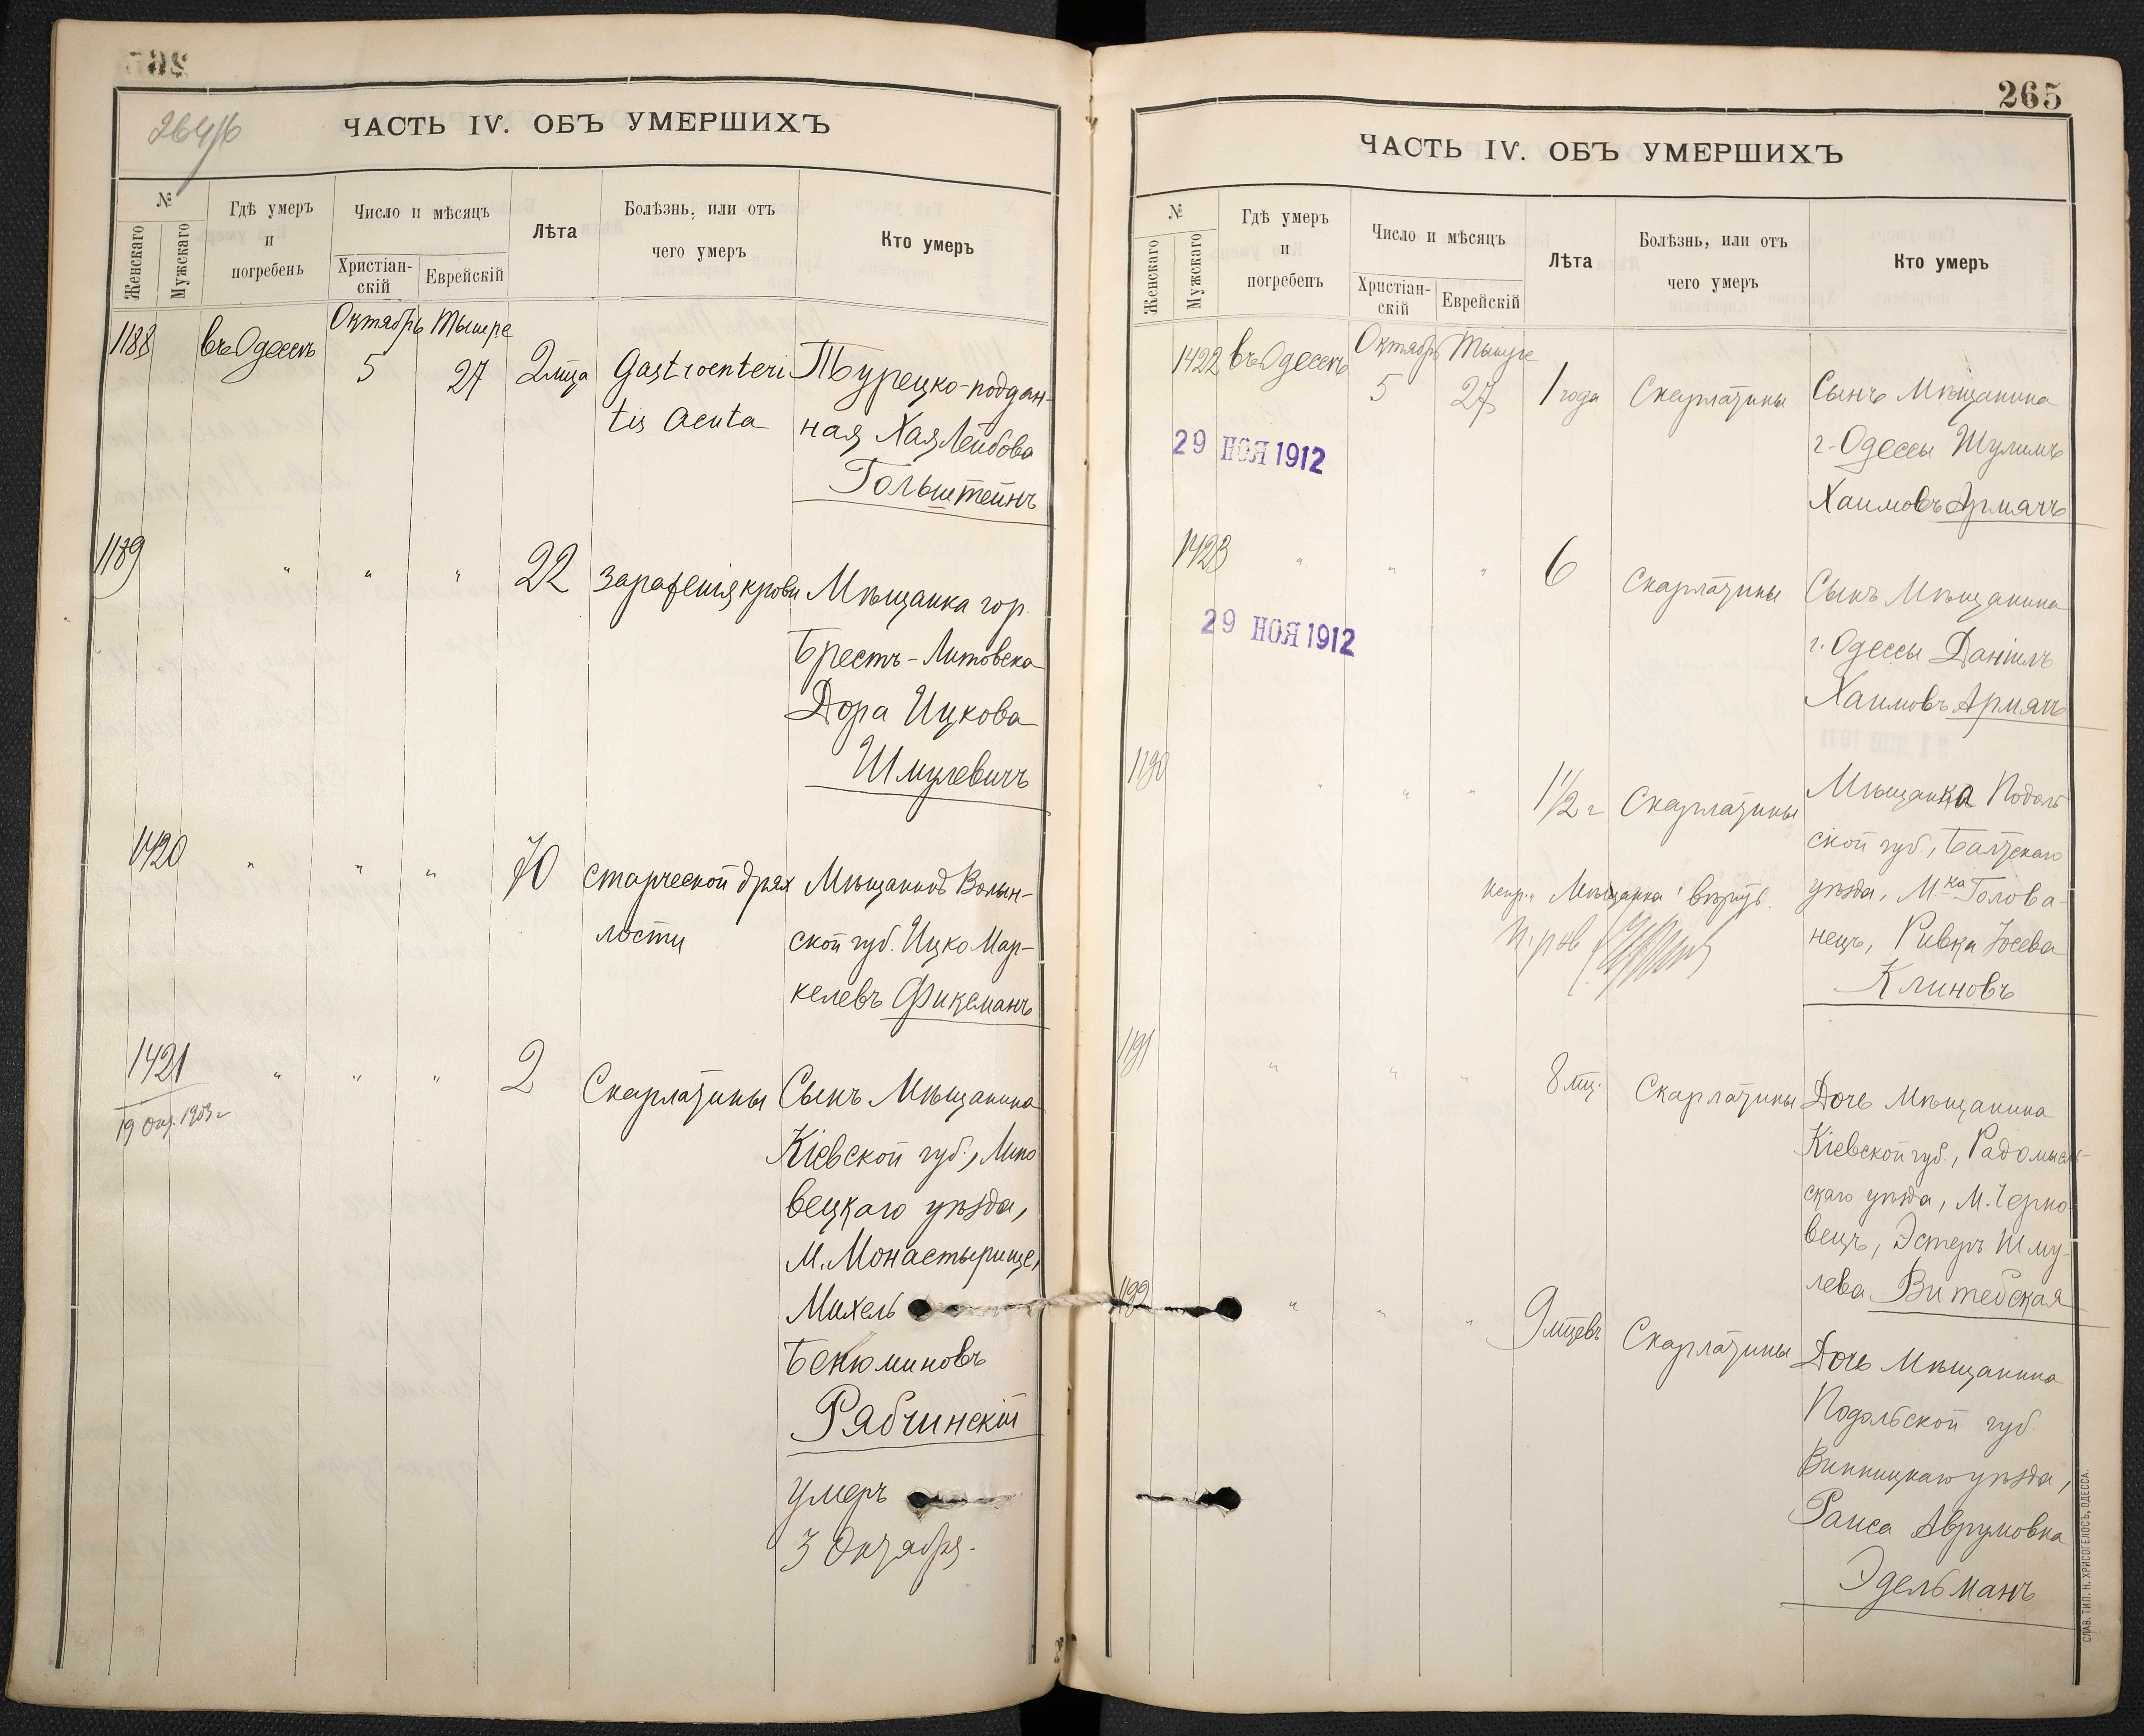 264/б
ЧАСТЬ IV. ОБЪ УМЕРШИХЪ
№
Женскаго
Мужскаго
Гдѣ умеръ
и
погребенъ
Число и мѣсяцъ
Христіан-
скій
Еврейскій
Лѣта
Болѣзнь, или отъ
чего умеръ
Кто умеръ
1188 въ Одессѣ Октябрь 5 Тышре 27 2 мца Gastroenteri
tis acuta
Турецко-поддан-
ная Хая Лейбова
Гольштейнъ
1189 " " " 22 зараженія крови Мѣщанка гор.
Брестъ-Литовска
Дора Ицкова
Шмулевичъ
1420 " " " 70 старческой дрях
лости
Мѣщанинъ Волын-
ской губ. Ицко Мар-
келевъ Фиксманъ
1421 " " " 2 Скарлатины Сынъ Мѣщанина
19 Окт. 1903 г
Кіевской губ., Липо
вецкаго уѣзда,
М. Монастырище,
Михель
Бенюминовъ
Рабчинскій
умеръ
3 Октября.
265
ЧАСТЬ IV. ОБЪ УМЕРШИХЪ
№
Женскаго
Мужскаго
Гдѣ умеръ
и
погребенъ
Число и мѣсяцъ
Христіан-
скій
Еврейскій
Лѣта
Болѣзнь, или отъ
чего умеръ
Кто умеръ
1422 въ Одессѣ Октябрь 5 Тышре 27 1 года Скарлатины Сынъ Мѣщанина
г. Одессы Шулимъ
Хаимовъ Армячъ
29 НОЯ 1912
1423 " " " 6 Скарлатины Сынъ Мѣщанина
г. Одессы Даніилъ
Хаимовъ Армячъ
29 НОЯ 1912
1190 " " " 1 1/2 г Скарлатины Мѣщанка Подоль
ской губ., Балтскаго
уѣзда, М-ка Голова-
нецъ, Ривка Іосева
Клиновъ
испр. "Мѣщанка" вѣрить.
1191 " " " 8 мц. Скарлатины Дочь Мѣщанина
Кіевской губ., Радомысль-
скаго уѣзда, М. Черно-
бецъ, Эстеръ Шму-
лева Витебская
1192 " " " 9 мцевъ Скарлатины Дочь Мѣщанина
Подольской губ.
Винницкаго уѣзда,
Раиса Аврумовна
Эдельманъ
СЛАВ. ТИП. Н. ХРИСОГЕЛОСЪ, ОДЕССА.